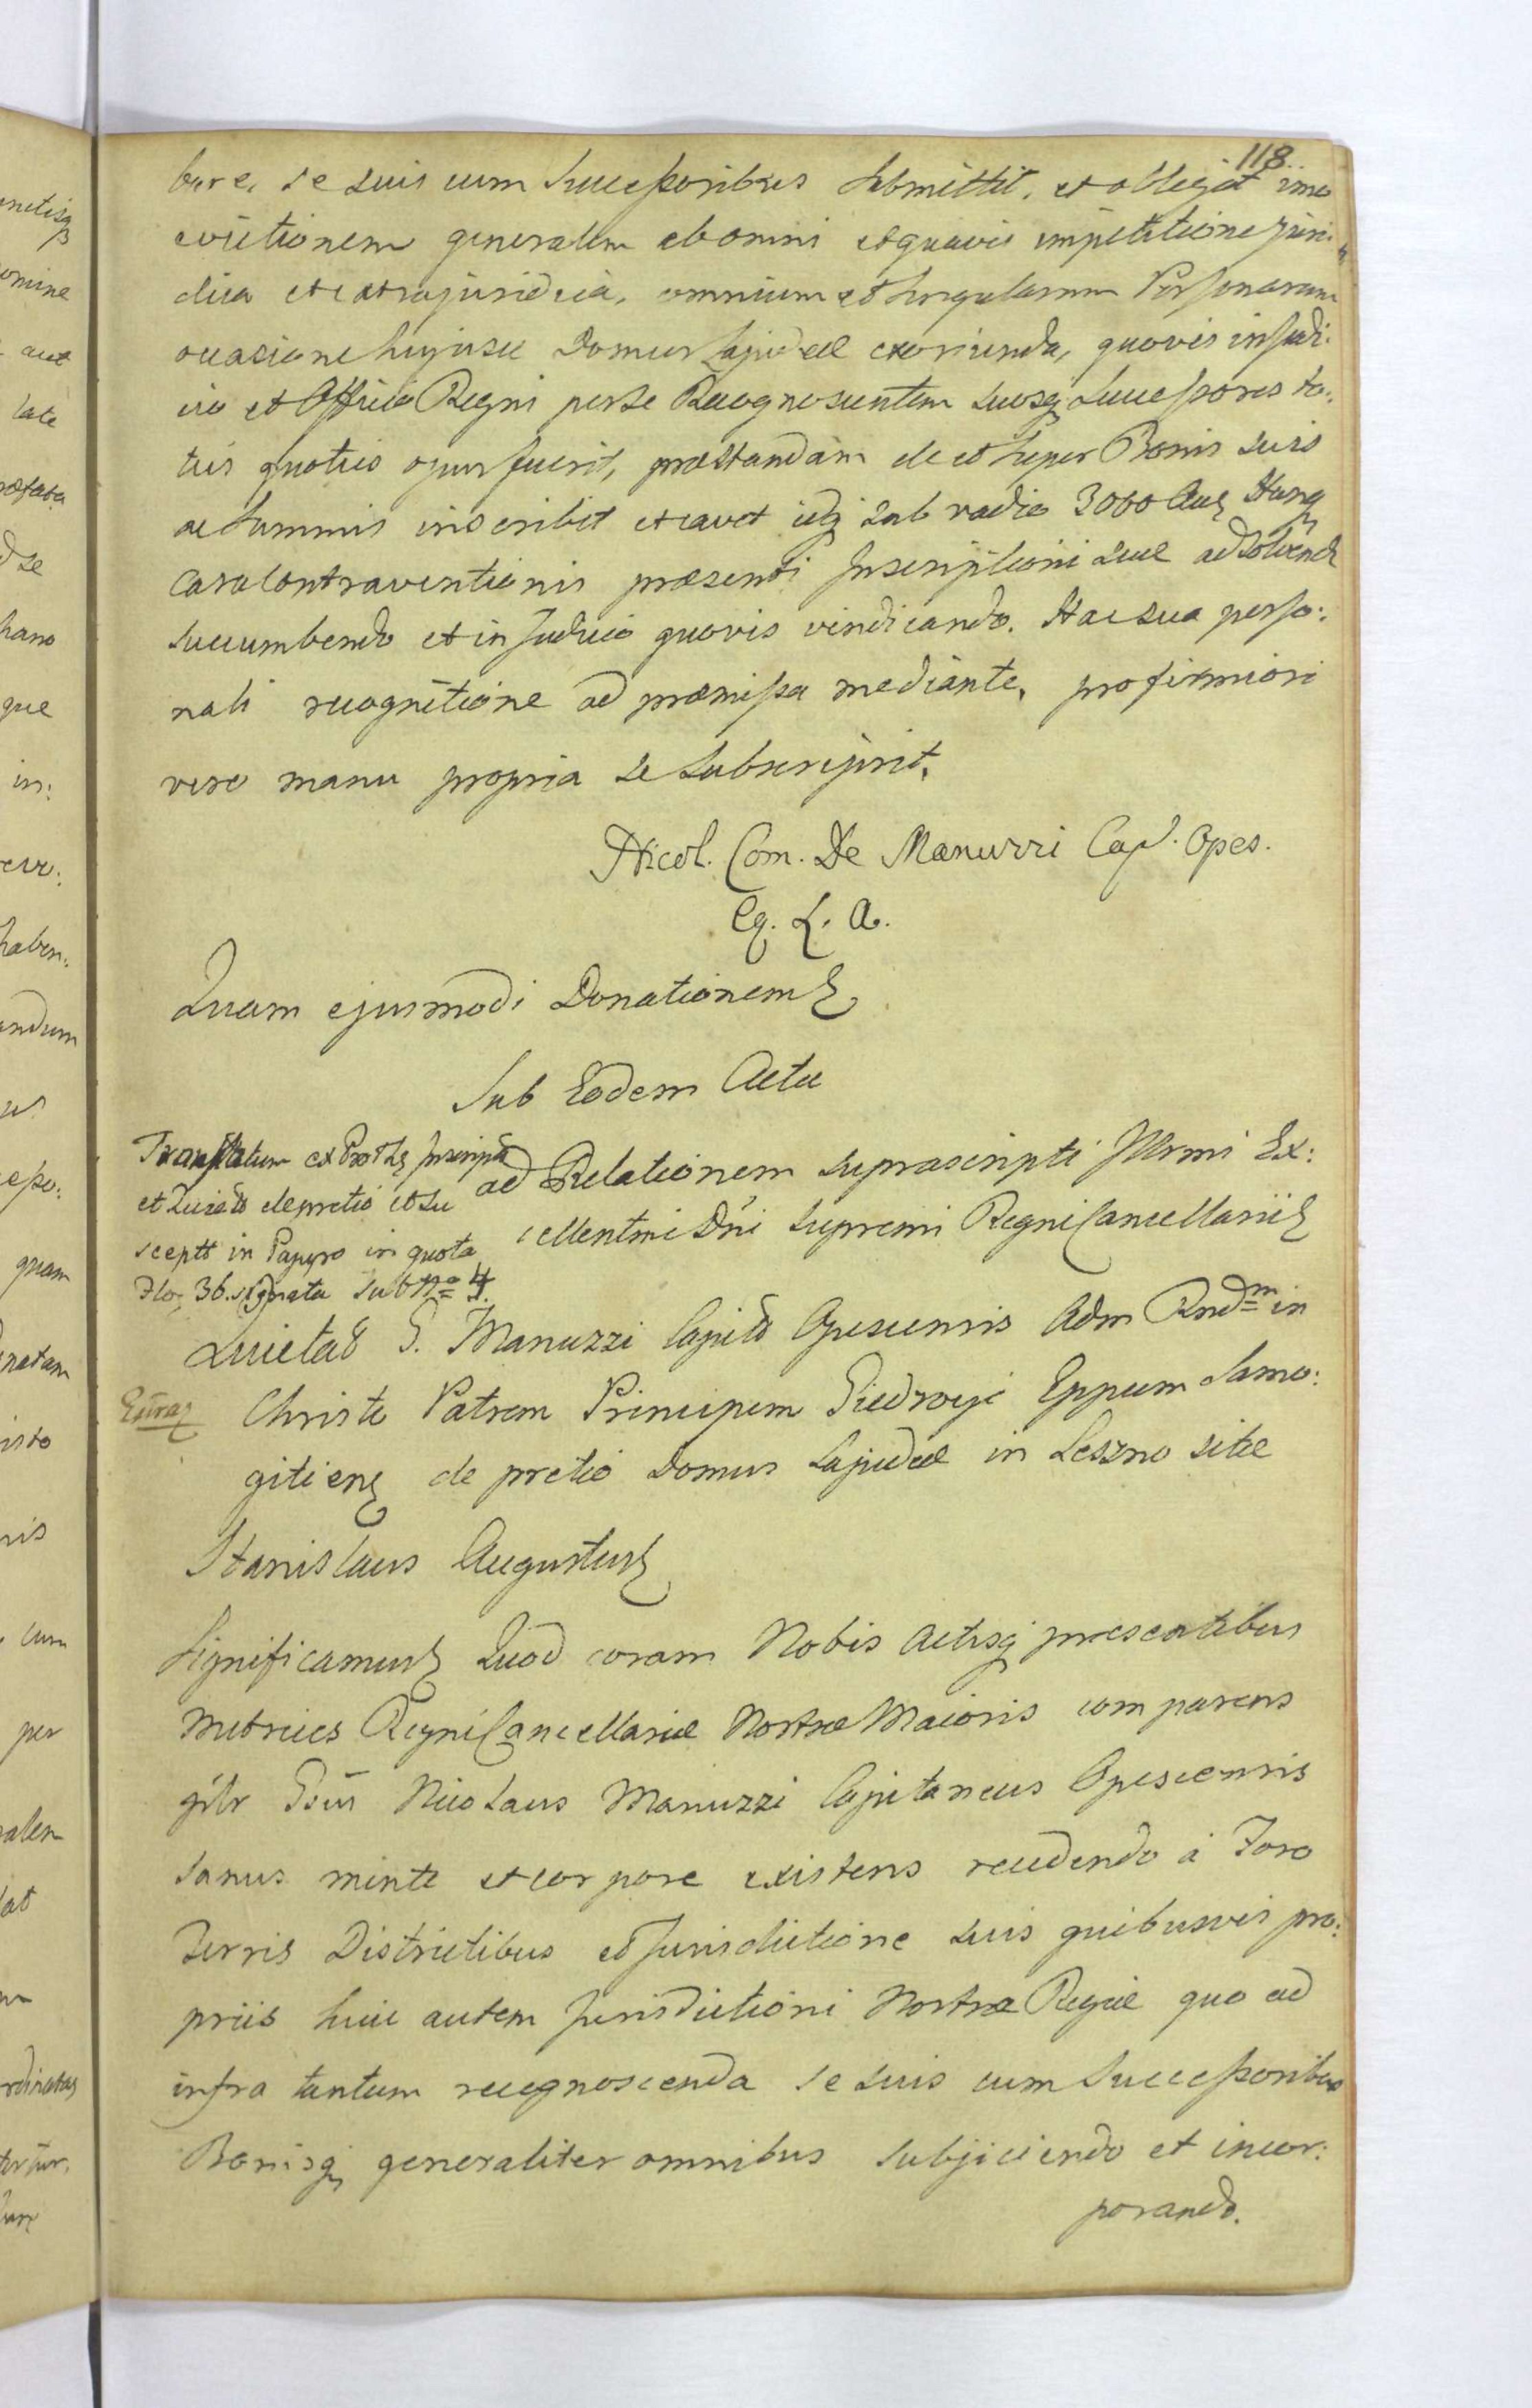 118.
bere, se suis cum Successoribus submittit, et obligat imo
evictionem generalem ab omni et quavis impetitione juri:
dica et extrajuridica, omnium et Singularum Personarum
occasione hujusce Domus Lapideæ exoriunda, quovis in Judi:
cio et Officio Regni per se Recognoscentem suosq Successores to:
ties quoties opus fuerit, præstandam de et super Bonis suis
ac Summis inscribit et cavet idq sub vadio 3000 Aur Hung
casu Contraventionis præsenti Inscriptioni suæ ad solvend
succumbendo et in Judicio quovis vindicando. Hac sua perso:
nali recognitione ad præmissa mediante, pro firmiori
vero manu propria se subscripsit.
Nicol. Com. De Manuzzi Cap. Opes.
Eq. L. A.
Quam ejusmodi Donationem
Sub Eodem Actu
Transsatum ex Proth Inscript
et Quietão de pretio et su
scepto in Papyro in quota
Flo. 36. signata sub No 4.
ad Relationem suprascripti Illrmi Ex:
cellentmi Dni Supremi Regni Cancellarii
Quietaõ G. Manuzzi Capit Opescensis Adm Rndm in
Extrag
Christo Patrem Principem Giedroyć Eppum Samo:
gitien de pretio Domus Lapideæ in Leszno sitæ
Stanislaus Augustus
Significamus Quod coram Nobis Actisq præsentibus
Metrices Regni Cancellariæ Nostræ Maioris comparens
pslr Gsus Nicolaus Manuzzi Capitaneus Opescensis
sanus mente et corpore existens recedendo á Foro
Terris Districtibus et Jurisdictione suis quibusvis pro:
priis huic autem Jurisdictioni Nostræ Regiæ quo ad
infra tantum recognoscenda se suis cum Successoribus
Bonisq generaliter omnibus subjiciendo et incor:
porando.